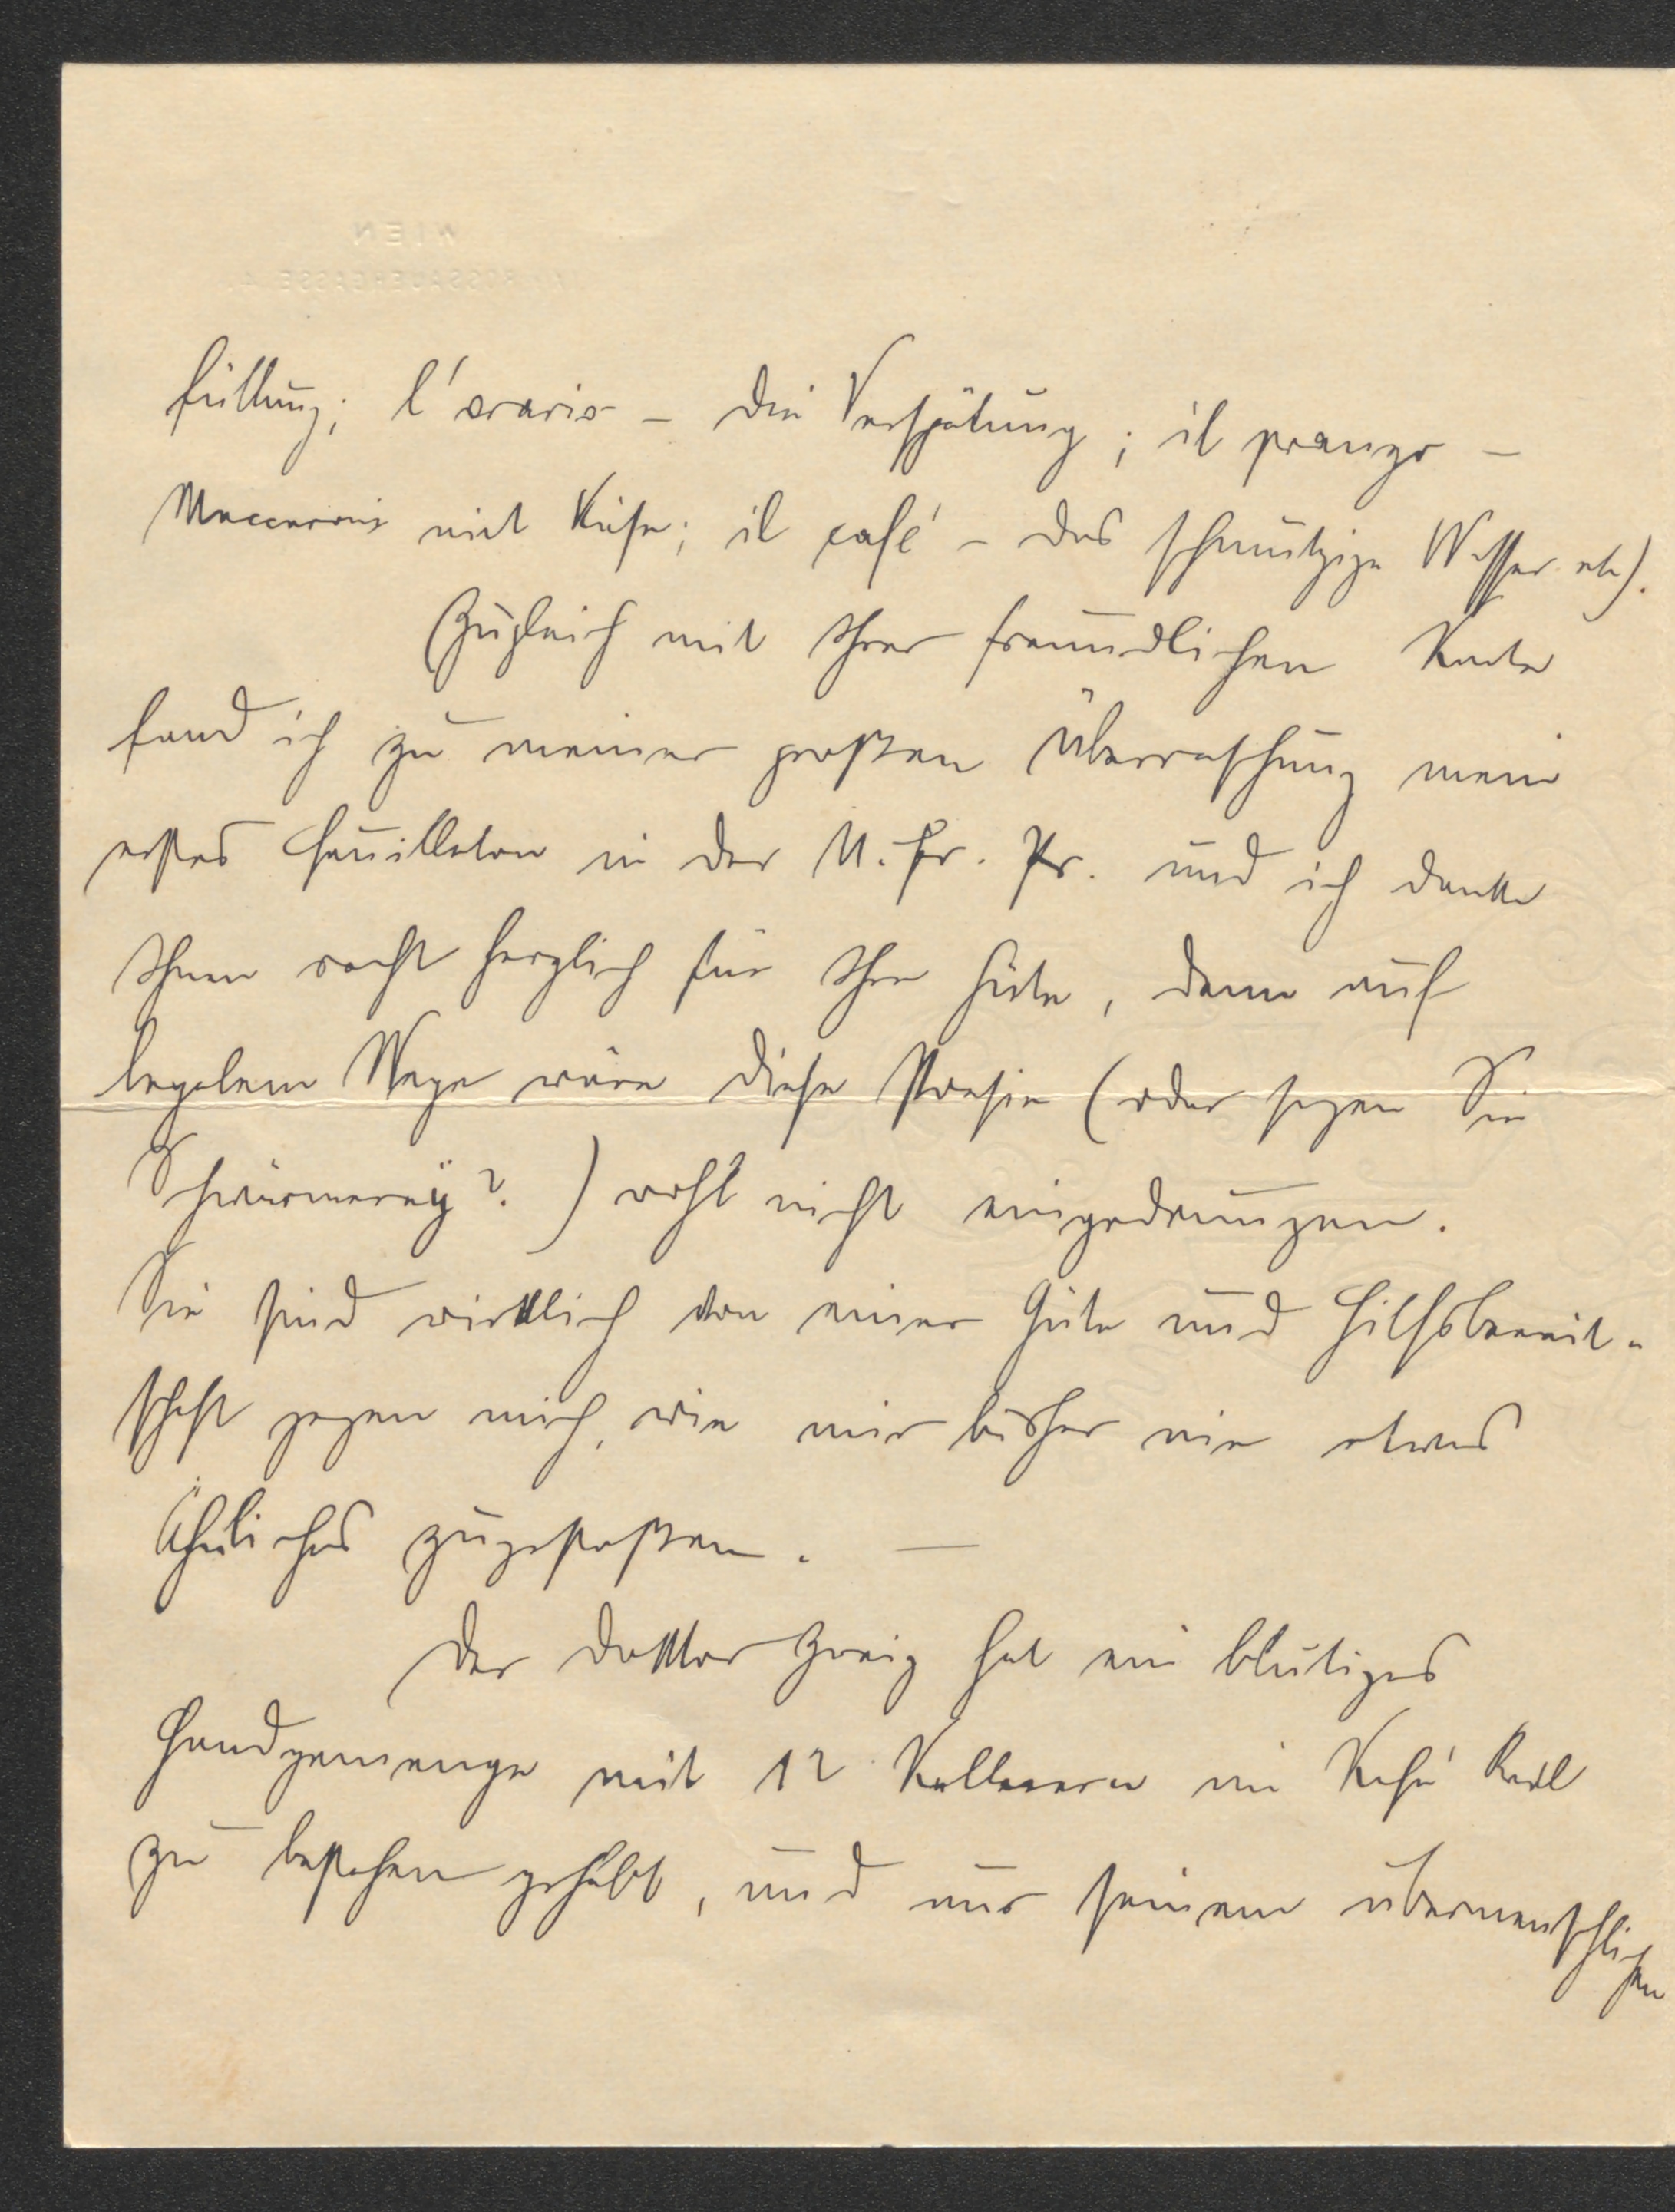 WIEN
ROSSAUERGASSE 4.
füllung; l'orario – die Verspätung; il pranzo –
Maccaroni mit Käse; il café – das schmutzige Wasser etc).
Zugleich mit Ihrer freundlichen Karte
fand ich zu meiner großen Überraschung mein
erstes Feuilleton in der N. Fr. Pr. und ich danke
Ihnen recht herzlich für Ihre Güte, denn auf
legalem Wege wäre diese Poesie (oder sagen Sie
Schwärmerey?) wohl nicht eingedrungen.
Sie sind wirklich von einer Güte und Hilfsbereit-
schaft gegen mich, wie mir bisher nie etwas
Ähnliches zugestoßen. —
Der Doktor Zweig hat ein blutiges
Handgemenge mit 12 Kellnern im Kafé
zu bestehen gehabt, und nur seinem übermenschlichen